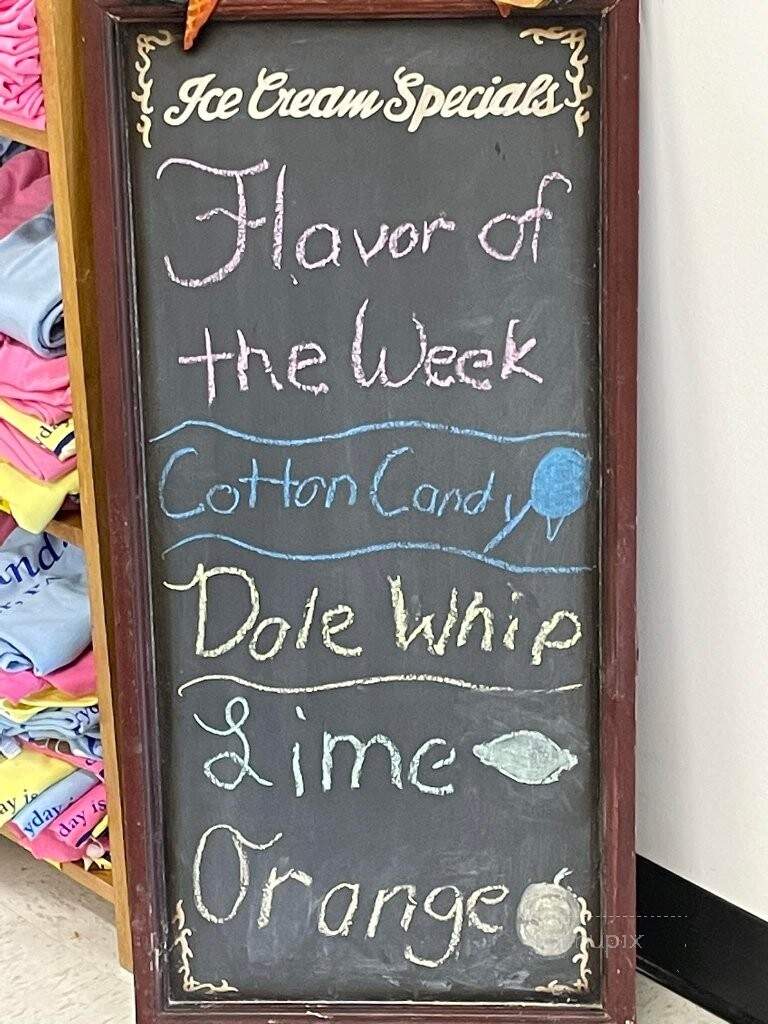 Ice Cream Specials
Flavor of
the Week
Cotton Candy
Dole Whip
Lime
Orange
day is
yday
day is